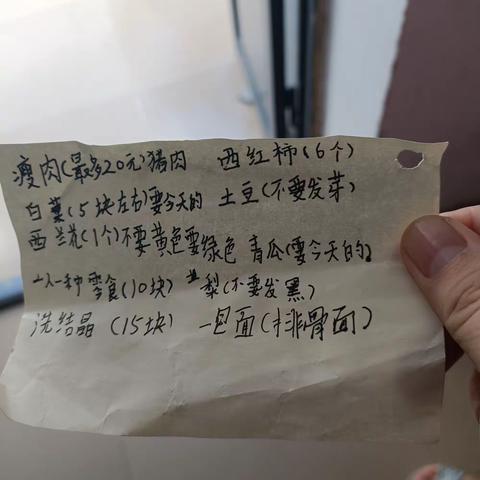 瘦肉(最多20元)猪肉 西红柿(6个)
白菜(5块左右)要今天的 土豆(不要发芽)
西兰花(1个)不要黄色要绿色 青瓜(要今天的)
一人一种零食(10块) 梨(不要发黑)
洗结晶(15块) 一包面(排骨面)